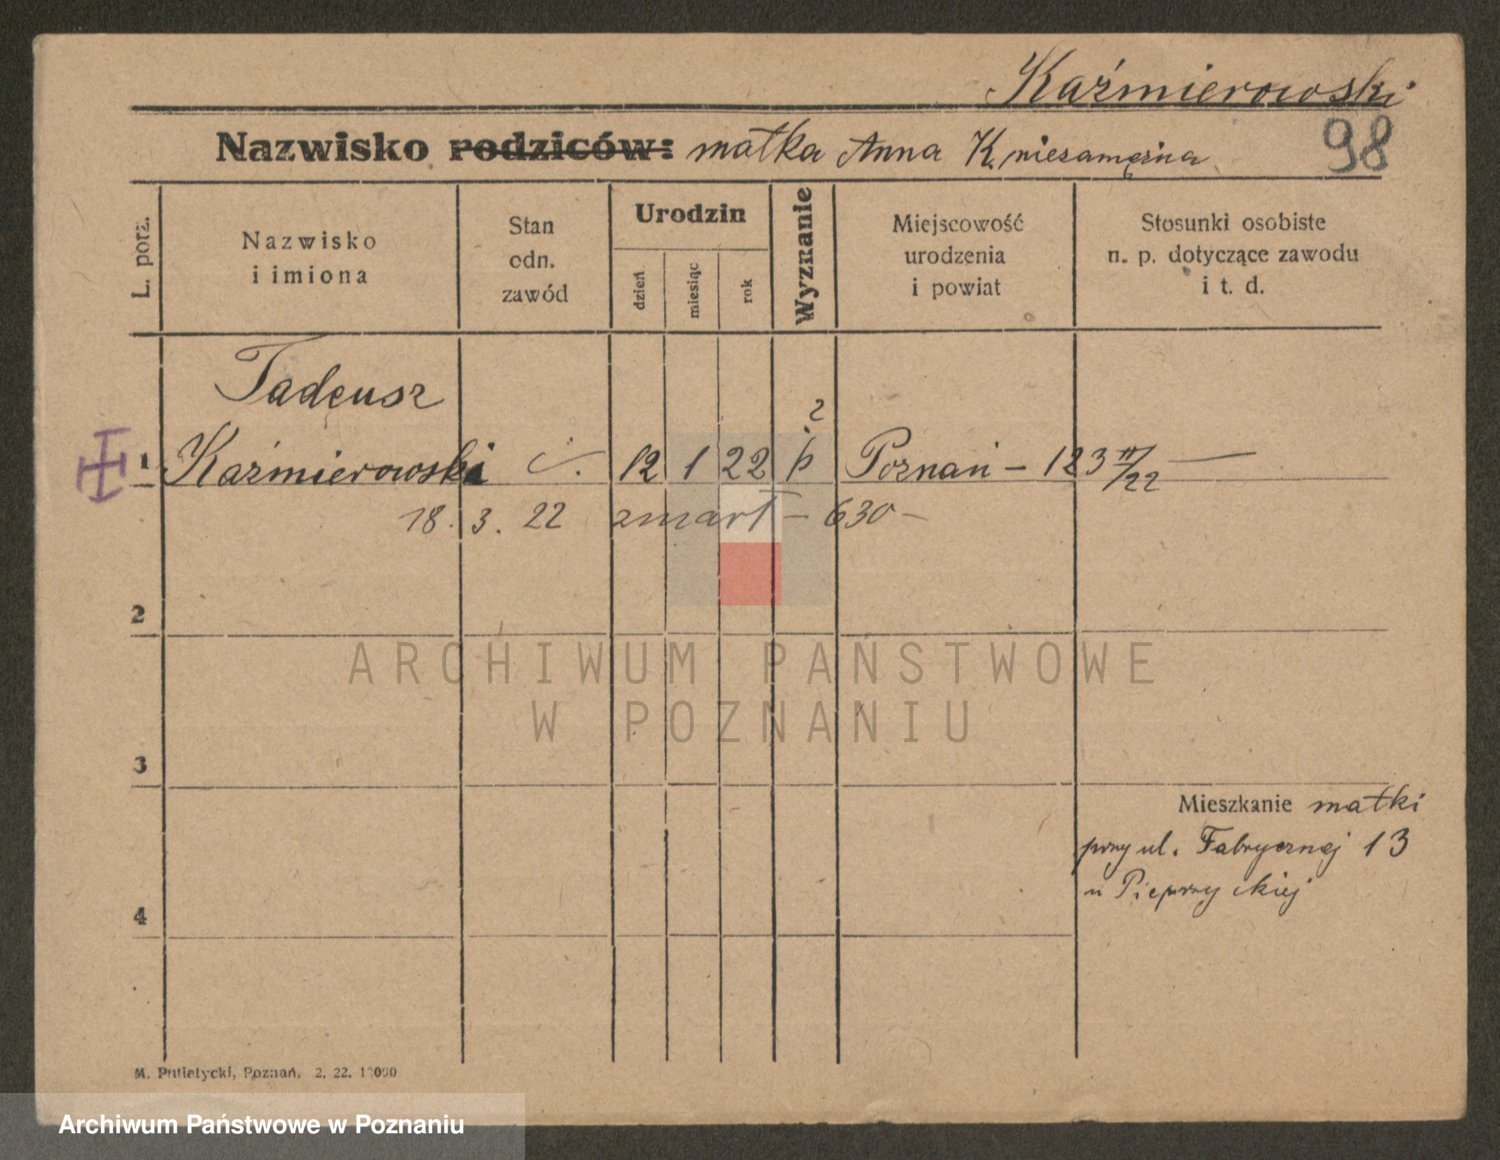 Kaźmierowski
98
Nazwisko rodziców: matka Anna K. niezamężna
L. porz.
Nazwisko
i imiona
Stan
odn.
zawód
Urodzin
dzień
miesiąc
rok
Wyznanie
Miejscowość
urodzenia
i powiat
Stosunki osobiste
n. p. dotyczące zawodu
i t. d.
Tadeusz
?
1 Kaźmierowski 12 1 22 Poznań – 123
18. 3. 22 zmarł – 630 –
2
ARCHIWUM PAŃSTWOWE
W POZNANIU
3
Mieszkanie matki
przy ul. Fabrycznej 13
4
M. Putiatycki, Poznań. 2. 22. 12000
Archiwum Państwowe w Poznaniu